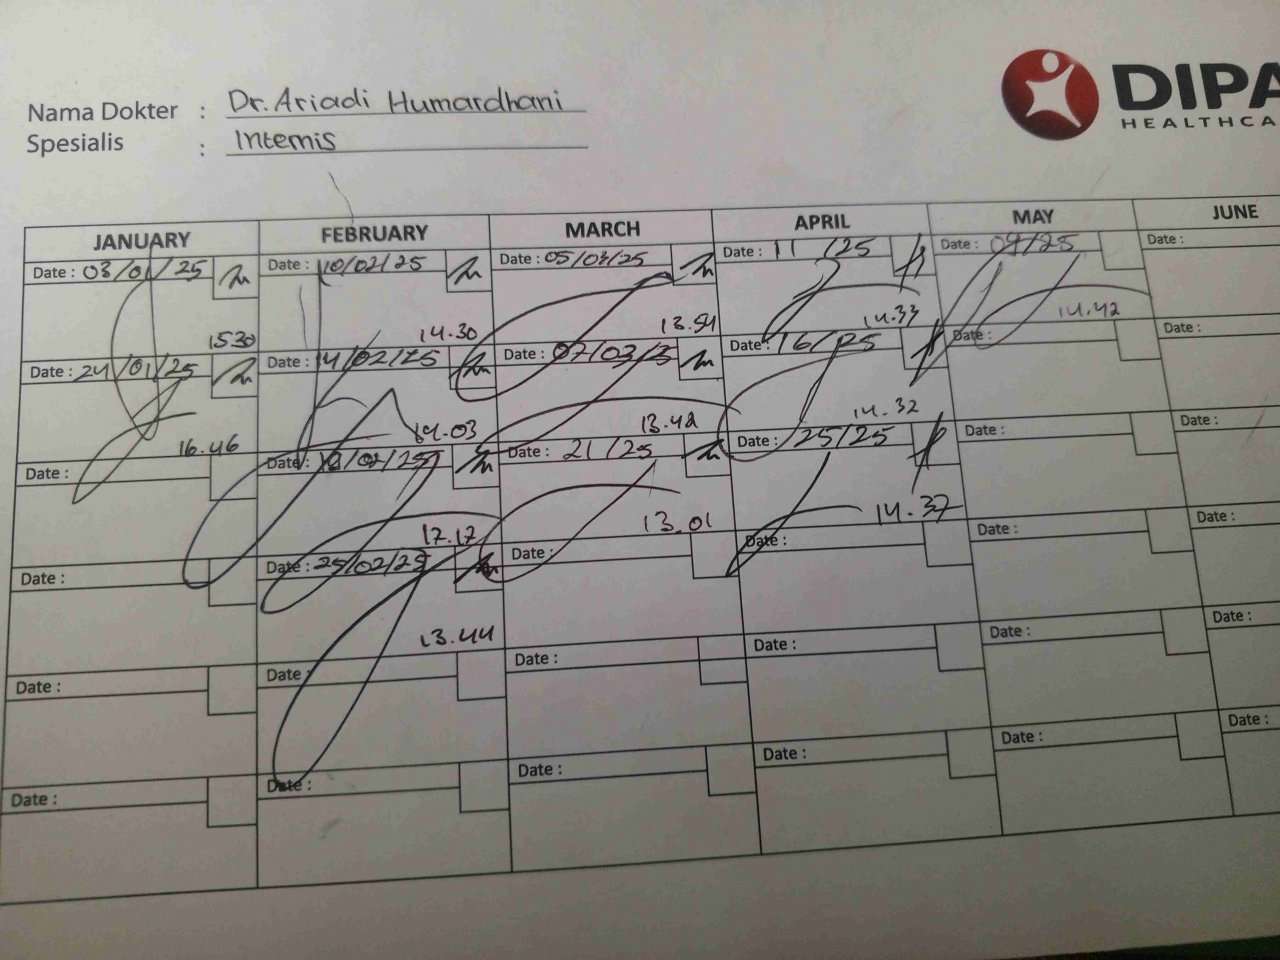 Nama Dokter : Dr. Ariadi Humardhani
Spesialis : Internis
DIPA
HEALTHCA
JANUARY FEBRUARY MARCH APRIL MAY JUNE
Date : 03/01/25 Date : 10/02/25 Date : 05/03/25 Date : 11 /25 Date : 09/25 Date :
15.30 14.30 13.54 14.33 14.42
Date : 24/01/25 Date : 14/02/25 Date : 07/03/ Date : 16/25 Date : Date :
16.46 14.03 13.42 14.32
Date : Date : /02/25 Date : 21/25 Date : 25/25 Date : Date :
17.17 13.01 14.37
Date : Date : 25/02/25 Date : Date : Date : Date :
13.44
Date : Date : Date : Date : Date : Date :
Date : Date : Date : Date : Date : Date :